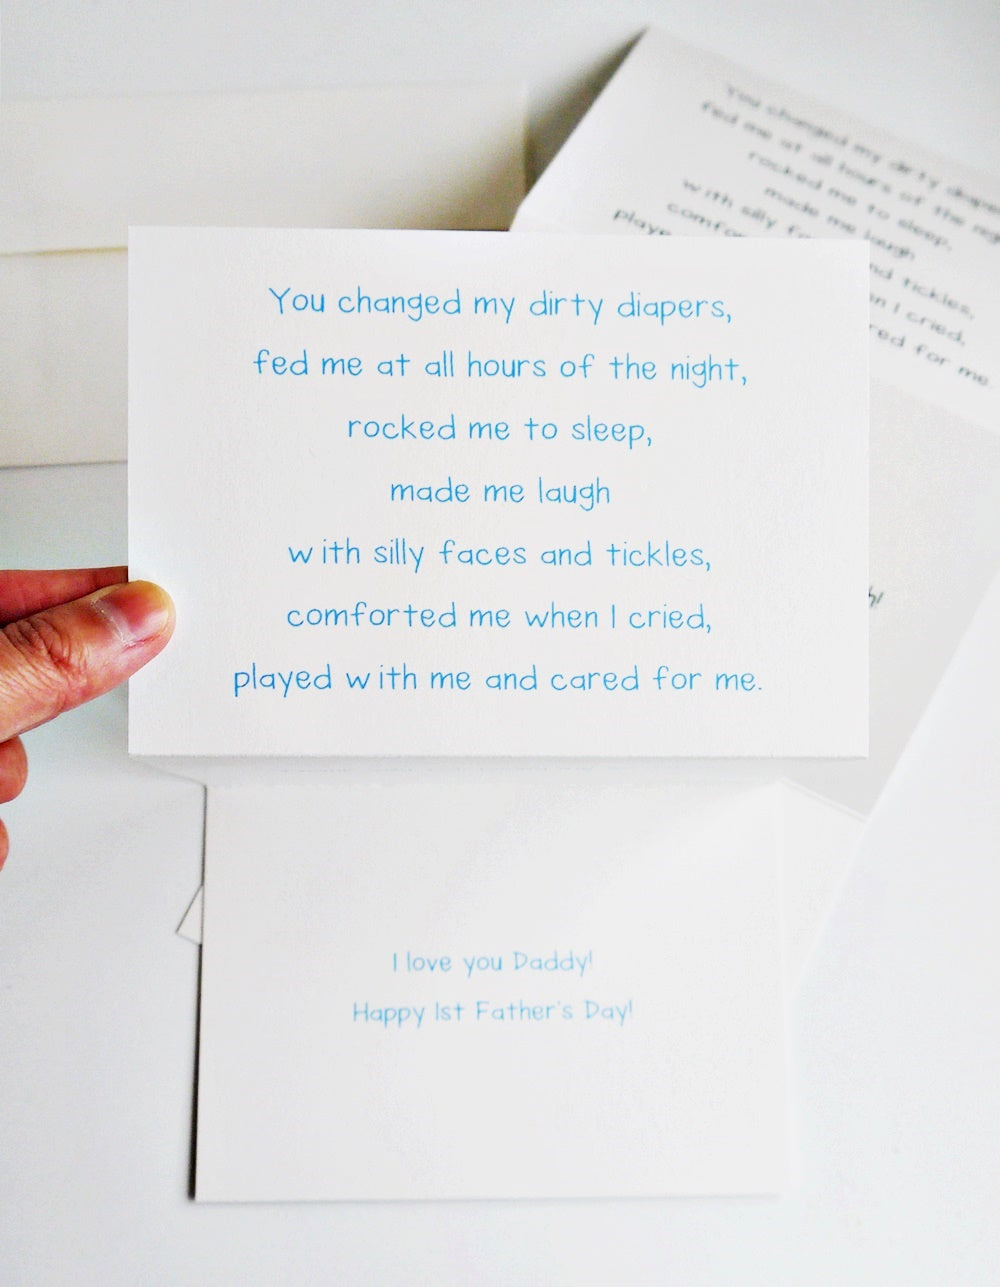 You changed my dirty diapers,
fed me at all hours of the night,
rocked me to sleep,
made me laugh
with silly faces and tickles,
comforted me when I cried,
played with me and cared for me.
I love you Daddy!
Happy 1st Father's Day!
You changed my dirty
fed me at all hours of the
rocked me to sleep,
made me laugh
with silly
tickles,
I cried,
for me.